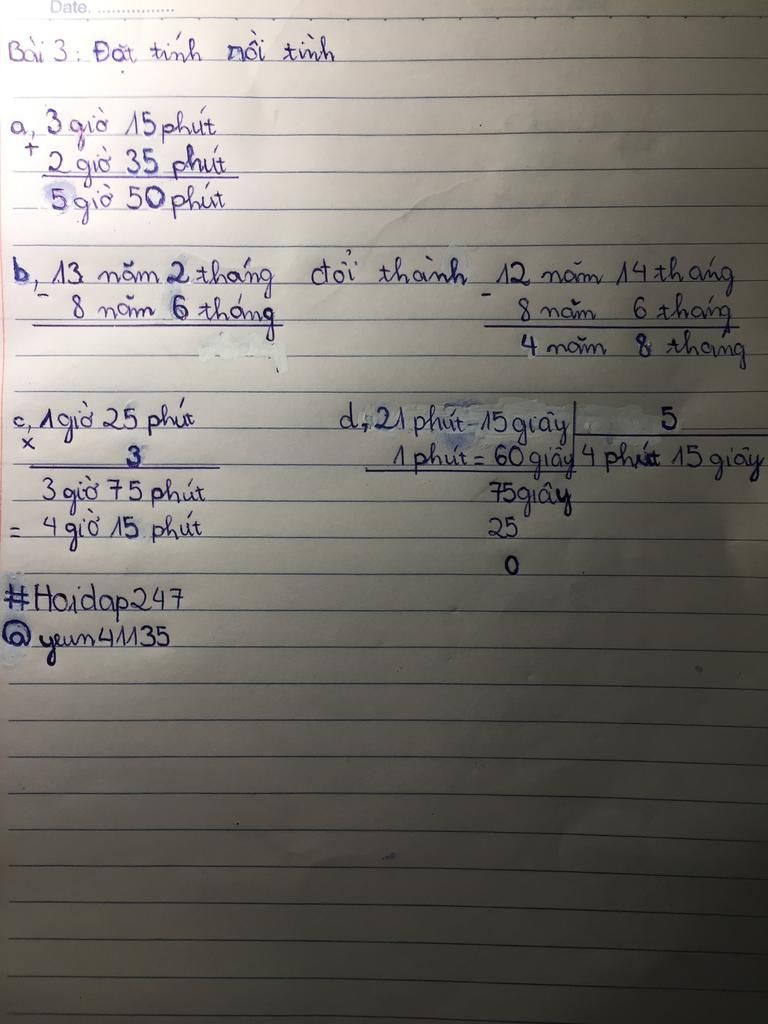 Date. ................
Bài 3: Đặt tính rồi tính
a, 3 giờ 15 phút
+ 2 giờ 35 phút
5 giờ 50 phút
b, 13 năm 2 tháng đổi thành 12 năm 14 tháng
- 8 năm 6 tháng - 8 năm 6 tháng
4 năm 8 tháng
c, 1 giờ 25 phút d, 21 phút 15 giây 5
x 3 1 phút = 60 giây 4 phút 15 giây
3 giờ 75 phút 75 giây
= 4 giờ 15 phút 25
0
#Hoidap247
@yeun41135